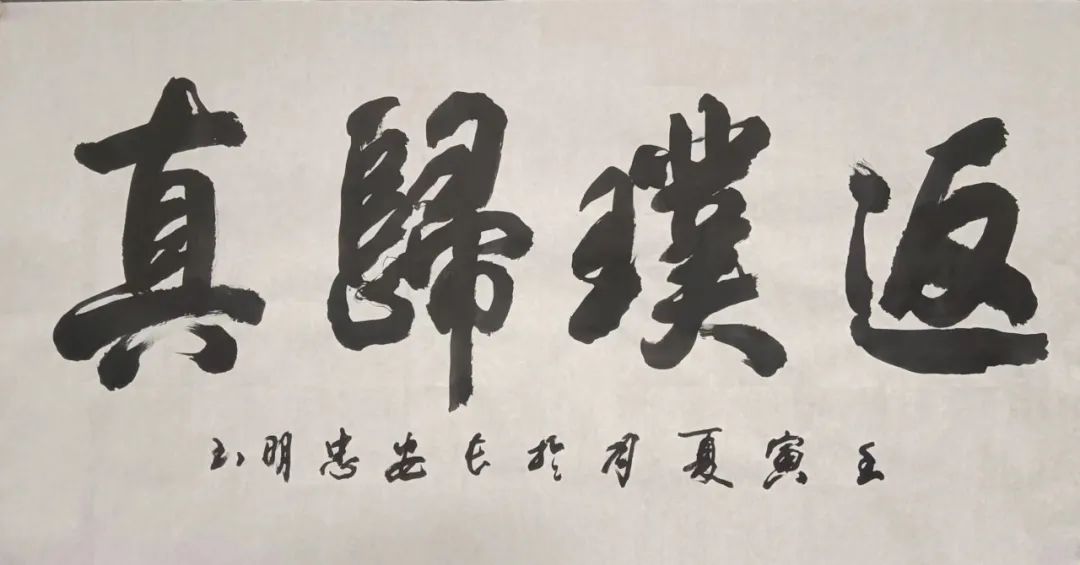 返璞歸真
壬寅夏月於长安忠明书